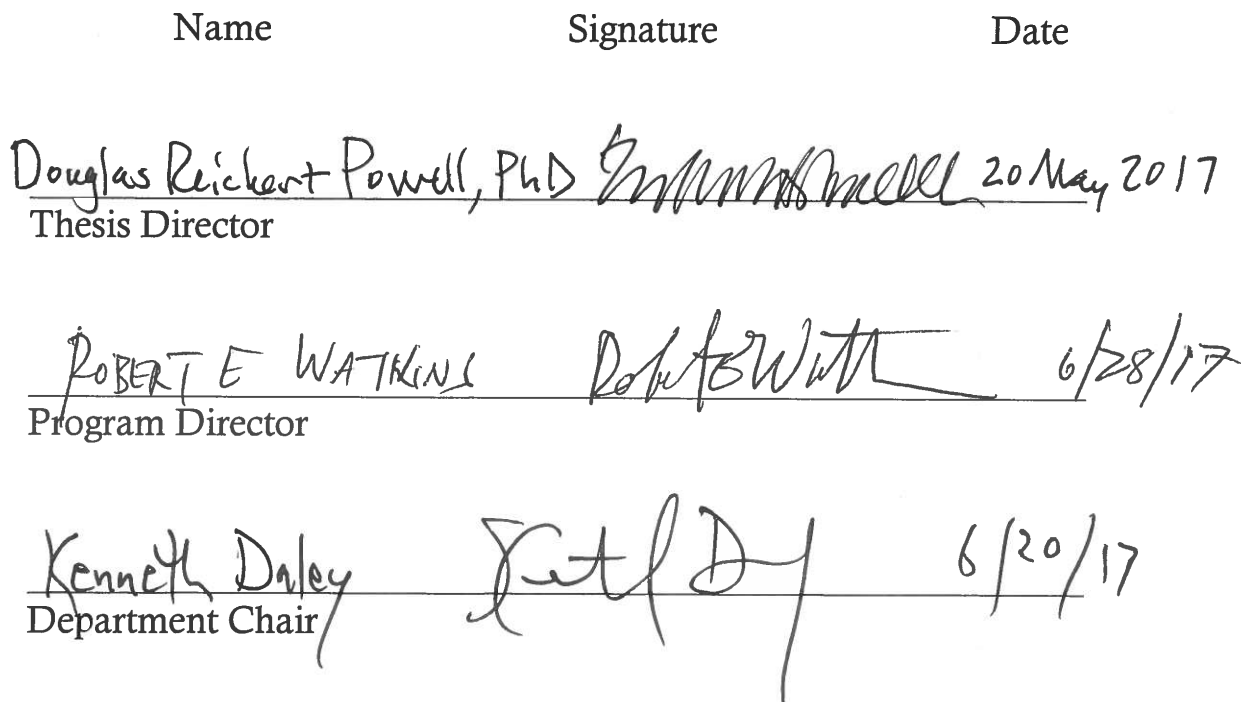 Name Signature Date
Douglas Reichert Powell, PhD 20 May 2017
Thesis Director
ROBERT E WATKINS Robert E Watk 6/28/17
Program Director
Kenneth Daley 6/20/17
Department Chair